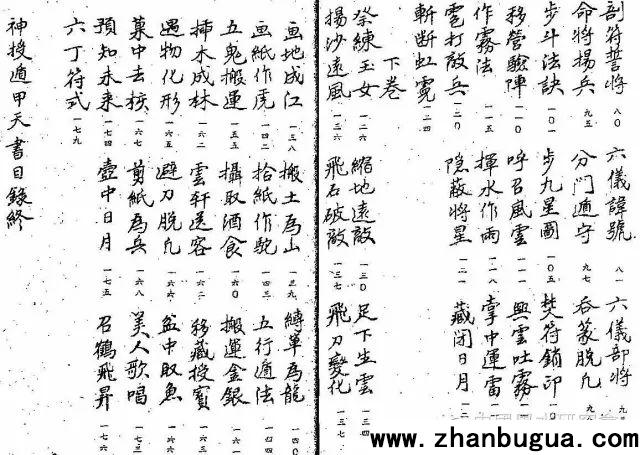 剖符誓將 八〇 六儀諱號 八一 六儀部將
命將揚兵 九五 分門遁守 九七 吞篆脫九
步斗法訣 一〇一 步九星圖 一〇五 焚符銷印
移營驗陣 一一〇 呼召風雲 一一一 興雲吐霧
作霧法 一一六 揮水作雨 一一八 掌中運雷
雹打敵兵 一二〇 隱蔽將星 一二一 藏閉日月
斬斷虹霓 一二四
下卷
祭練玉女 一二六 縮地遠敵 一三〇 足下生雲 一三四
揚沙遠風 一三六 飛石破敵 一三七 飛刀變化 一三七
画地成江 一三八 搬土為山 一三九 縛草為龍 一四〇
画紙作虎 一四二 拾紙作駝 一四三 五行遁法
五鬼搬運 一五五 攝取酒食 一六〇 搬運金銀 一六一
插木成林 一六二 雲軒送客 一六四 移藏投寳
遇物化形 一六五 避刀脫九 盆中取魚 一六六
菓中去核 一六七 剪紙為兵 一六八 美人歌唱 一七三
預知未來 一七四 壺中日月 一七五 召鶴飛昇 一七六
六丁符式 一七九
神授遁甲天書目錄終
www.zhanbugua.com